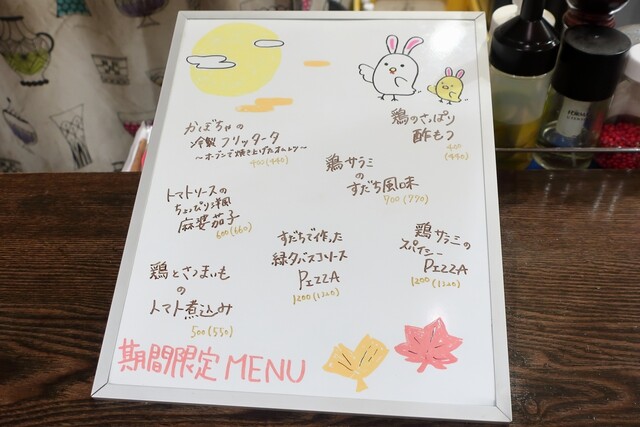 かぼちゃの
冷製フリッタータ
〜オーブンで焼き上げたオムレツ〜
400(440)
鶏のさっぱり
酢もつ
400
(440)
鶏サラミ
の
すだち風味
700(770)
トマトソースの
ちょっぴり洋風
麻婆茄子
600(660)
すだちで作った
緑タバスコソース
PIZZA
1200(1320)
鶏サラミの
スパイシー
PIZZA
1200(1320)
鶏とさつまいも
の
トマト煮込み
500(550)
期間限定MENU